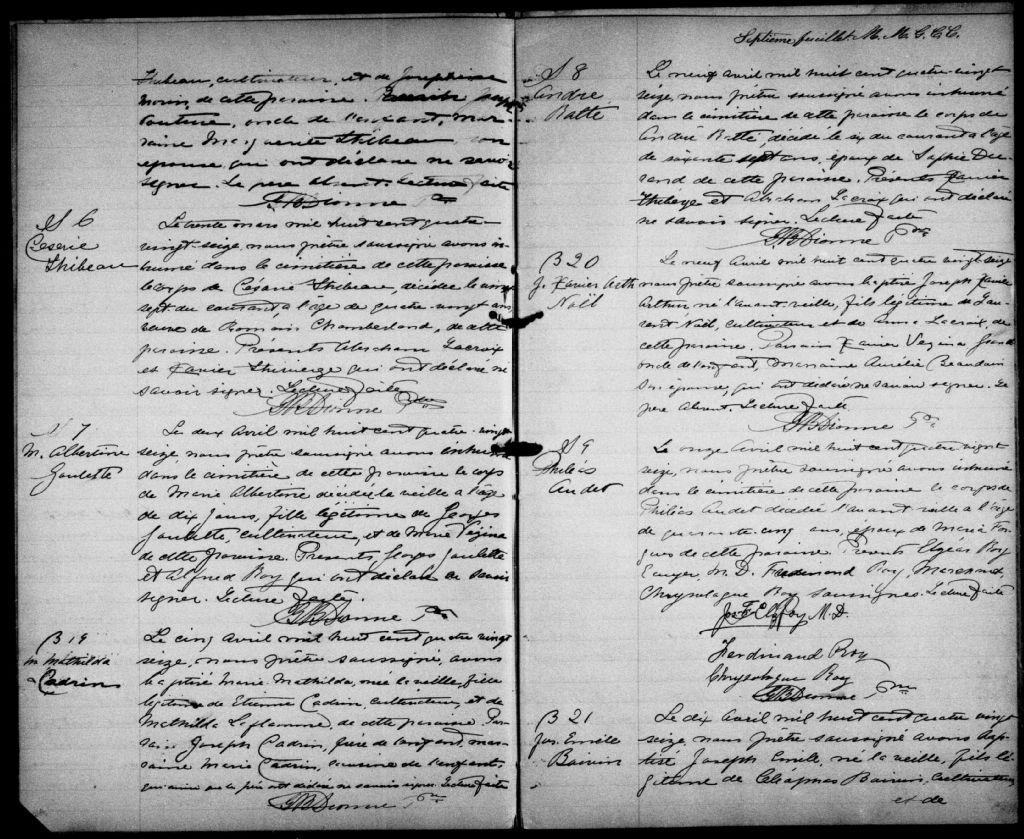 Thibeau, cultivateur, et de Josephine
Morin, de cette paroisse. Parrain
Couture, oncle de l'enfant, mar-
raine Marguerite Thibeau son
epouse qui ont déclaré ne savoir
signer. Le père absent. Lecture faite
Dionne Ptre
S 6
Céserie
Thibeau
Le trente mars mil huit cent quatre
vingt-seize, nous prêtre soussigné avons in-
humé dans le cimétière de cette paroisse
le corps de Césarie Thibeau, décédée le vingt
sept du courant, à l'âge de quatre-vingt ans
veuve de Romain Chamberland, de cette
paroisse. Présents Abraham Lacroix
et Xavier Thivierge qui ont déclaré ne
savoir signer. Lecture faite
Dionne Ptre
S 7
M. Albertine
Goulette
Le deux Avril mil huit cent quatre-vingt
seize, nous prêtre soussigné avons inhumé
dans le cimétière de cette paroisse le corps
de Marie Albertine décédée la veille à l'âge
de dix jours, fille légitime de Georges
Goulette, cultivateur, et de Marie Vézina
de cette paroisse. Présents, Georges Goulette
et Alfred Roy qui ont déclaré ne savoir
signer. Lecture faite.
Dionne Ptre
B 19
M Mathilda
Cadrin
Le cinq Avril mil huit cent quatre vingt
seize, nous prêtre soussigné, avons
baptisé Marie Mathilda, née la veille, fille
légitime de Etienne Cadrin, cultivateur, et de
Mathilda Laflamme, de cette paroisse. Par-
rain Joseph Cadrin, frère de l'enfant, mar-
raine Marie Cadrin, soeur de l'enfant,
qui ainsi que le père ont déclaré ne savoir signer. Lecture faite
Dionne Ptre
Septième feuillet. M. M. G. C. C.
S 8
André
Batté
Le neuf Avril mil huit cent quatre-vingt
seize, nous prêtre soussigné avons inhumé
dans le cimétière de cette paroisse le corps de
André Batté, décédé le six du courant à l'âge
de soixante sept ans, époux de Sophie Du-
rand de cette paroisse. Présents Xavier
et Abraham Lacroix qui ont déclaré
ne savoir signer. Lecture faite
Dionne Ptre
B 20
J. Xavier Arth
Noël
Le neuf Avril mil huit cent quatre vingt seize
nous prêtre soussigné avons baptisé Joseph Xavier
Arthur, né l'avant-veille, fils légitime de Lau-
rent Noël, cultivateur et de Anna Lacroix, de
cette paroisse. Parrain Xavier Vézina Grand
oncle de l'enfant, marraine Aurélie Beaudoin
son épouse, qui ont déclaré ne savoir signer. Le
père absent. Lecture faite
Dionne Ptre
S 9
Philéas
Audet
Le onze Avril mil huit cent quatre vingt
seize, nous prêtre soussigné avons inhumé
dans le cimétière de cette paroisse le corps de
Philéas Audet décédé l'avant veille à l'âge
de quarante-cinq ans, époux de Marie For-
gues de cette paroisse. Présents Elzéar Roy
Ecuyer, M. D. Ferdinand Roy, Marchand,
Chrysologue Roy soussignés. Lecture faite
Roy M. D.
Ferdinand Roy
Chrysologue Roy
Dionne Ptre
B 21
Jos. Emile
Boivin
Le dix Avril mil huit cent quatre vingt
seize, nous prêtre soussigné avons bap-
tisé Joseph Emile, né la veille, fils lé-
gitime de Boivin, cultivateur
et de